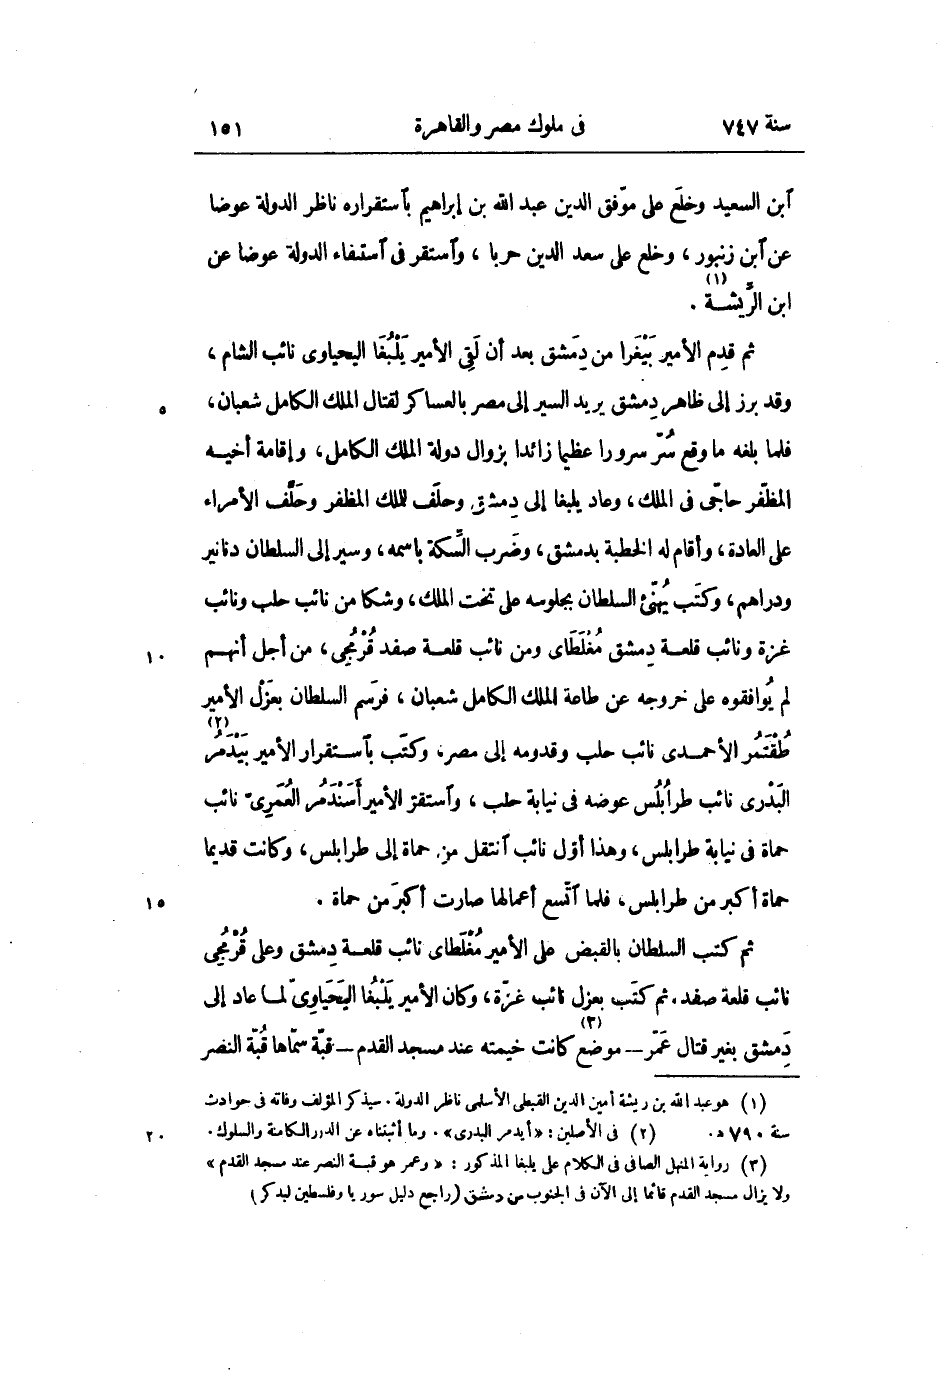 سنة ٧٤٧ فى ملوك مصر والقاهرة ١٥١
آبن السعيد وخلَع على موّفق الدين عبد الله بن إبراهيم بآستقراره ناظر الدولة عوضا
عن آبن زنبور ، وخلع على سعد الدين حربا ، وآستقر فى آستيفاء الدولة عوضا عن
ابن الرِّيشة (١) .
ثم قدِم الأمير بَيْغَرا من دِمَشق بعد أن لَقِى الأمير يَلْبُغَا اليحياوى نائب الشام ،
وقد برز إلى ظاهر دِمشق يريد السير إلى مصر بالعساكر لقتال الملك الكامل شعبان، ٥
فلما بلغه ما وقع سُرّ سرورا عظيما زائدا بزوال دولة الملك الكامل، وإقامة أخيه
المظفّر حاجّى فى الملك ، وعاد يلبغا إلى دِمشق وحلَف للملك المظفر وحَلَّف الأمراء
على العادة ، وأقام له الخطبة بدمشق، وضَرب السِّكة باسمه، وسير إلى السلطان دنانير
ودراهم، وكتَب يُهنِّئ السلطان بجلوسه على تخت الملك، وشكا من نائب حلب ونائب
غزة ونائب قلعة دِمشق مُغْلَطَاى ومن نائب قلعة صفد قُرْمُجِى، من أجل أنهم ١٠
لم يُوافقوه على خروجه عن طاعة الملك الكامل شعبان ، فرسَم السلطان بعَزْل الأمير
طُقْتَمُر الأحمدى نائب حلب وقدومه إلى مصر، وكتَب بآستقرار الأمير بَيْدَمُر (٢)
البَدْرى نائب طرابُلُس عوضه فى نيابة حلب ، وآستقرّ الأمير أَسَنْدَمُر العُمَرِىّ نائب
حماة فى نيابة طرابلس، وهذا أوّل نائب آنتقل من حماة إلى طرابلس، وكانت قديما
حماة أكبر من طرابلس، فلما آتّسع أعمالها صارت أكبرَ من حماة . ١٥
ثم كتب السلطان بالقبض على الأمير مُغْلَطاى نائب قلعة دِمشق وعلى قُرْمُجِى
نائب قلعة صفد. ثم كتَب بعزل نائب غزّة، وكان الأمير يَلْبُغَا اليَحْيَاوِىّ لما عاد إلى
دِمَشق بغير قتال عَمّر — موضع كانت خيمته عند مسجد القدم — قبّة سمّاها قُبّة النصر (٣)
(١) هو عبد الله بن ريشة أمين الدين القبطى الأسلمى ناظر الدولة . سيذكر المؤلف وفاته فى حوادث
سنة ٧٩٠ هـ . (٢) فى الأصلين : « أيدمر البدرى » . وما أثبتناه عن الدرر الكامنة والسلوك . ٢٠
(٣) رواية المنهل الصافى فى الكلام على يلبغا المذكور : « وعمر هو قبة النصر عند مسجد القدم »
ولا يزال مسجد القدم قائما إلى الآن فى الجنوب من دمشق (راجع دليل سوريا وفلسطين لبدكر)